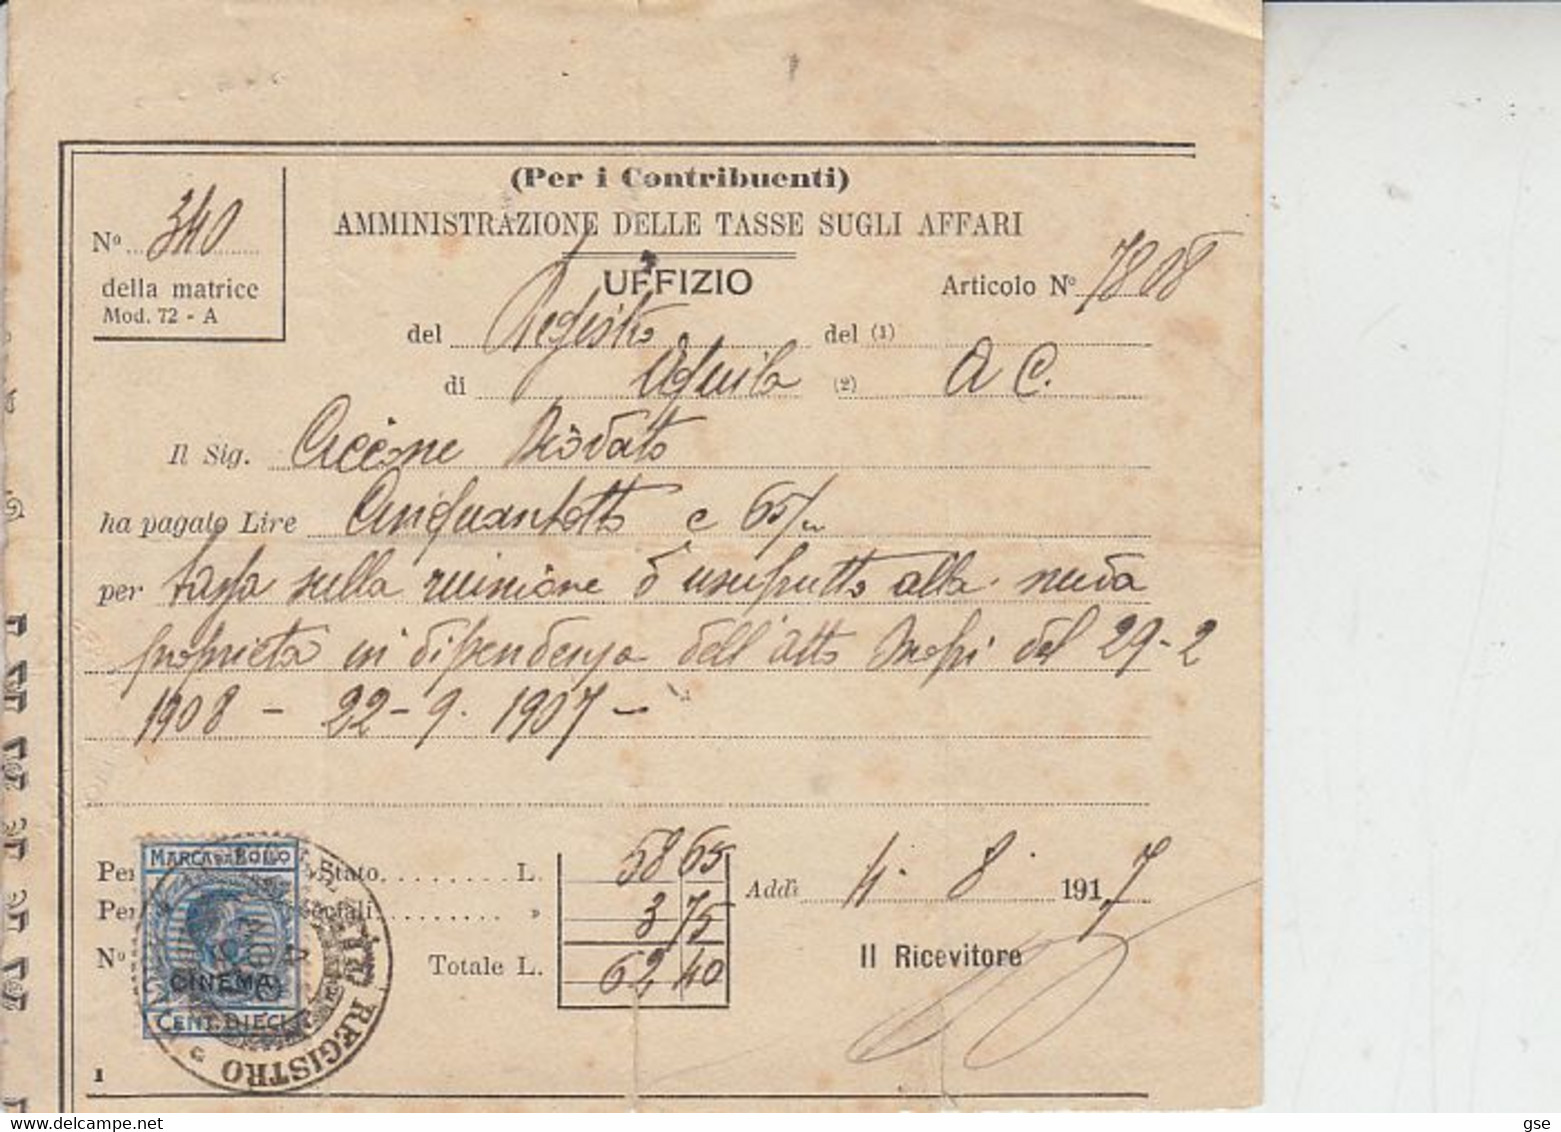 (Per i Contribuenti)
AMMINISTRAZIONE DELLE TASSE SUGLI AFFARI
Nº 340
della matrice
Mod. 72 - A
UFFIZIO
Articolo Nº 7808
del Registro del (1)
di Aquila (2) A C.
Il Sig. Ciccone Diodato
ha pagato Lire Cinquantotto e 65/
per tassa sulla riunione d'usufrutto alla nuda
proprietà in dipendenza dell'atto del 29-2
1908 - 22-9. 1907 -
MARCA DA BOLLO
CINEMA
CENT. DIECI
REGISTRO
Per Stato L. 58 65
Per 3 75
Nº Totale L. 62 40
Addì 4. 8. 1917
Il Ricevitore
1
www.delcampe.net
gse